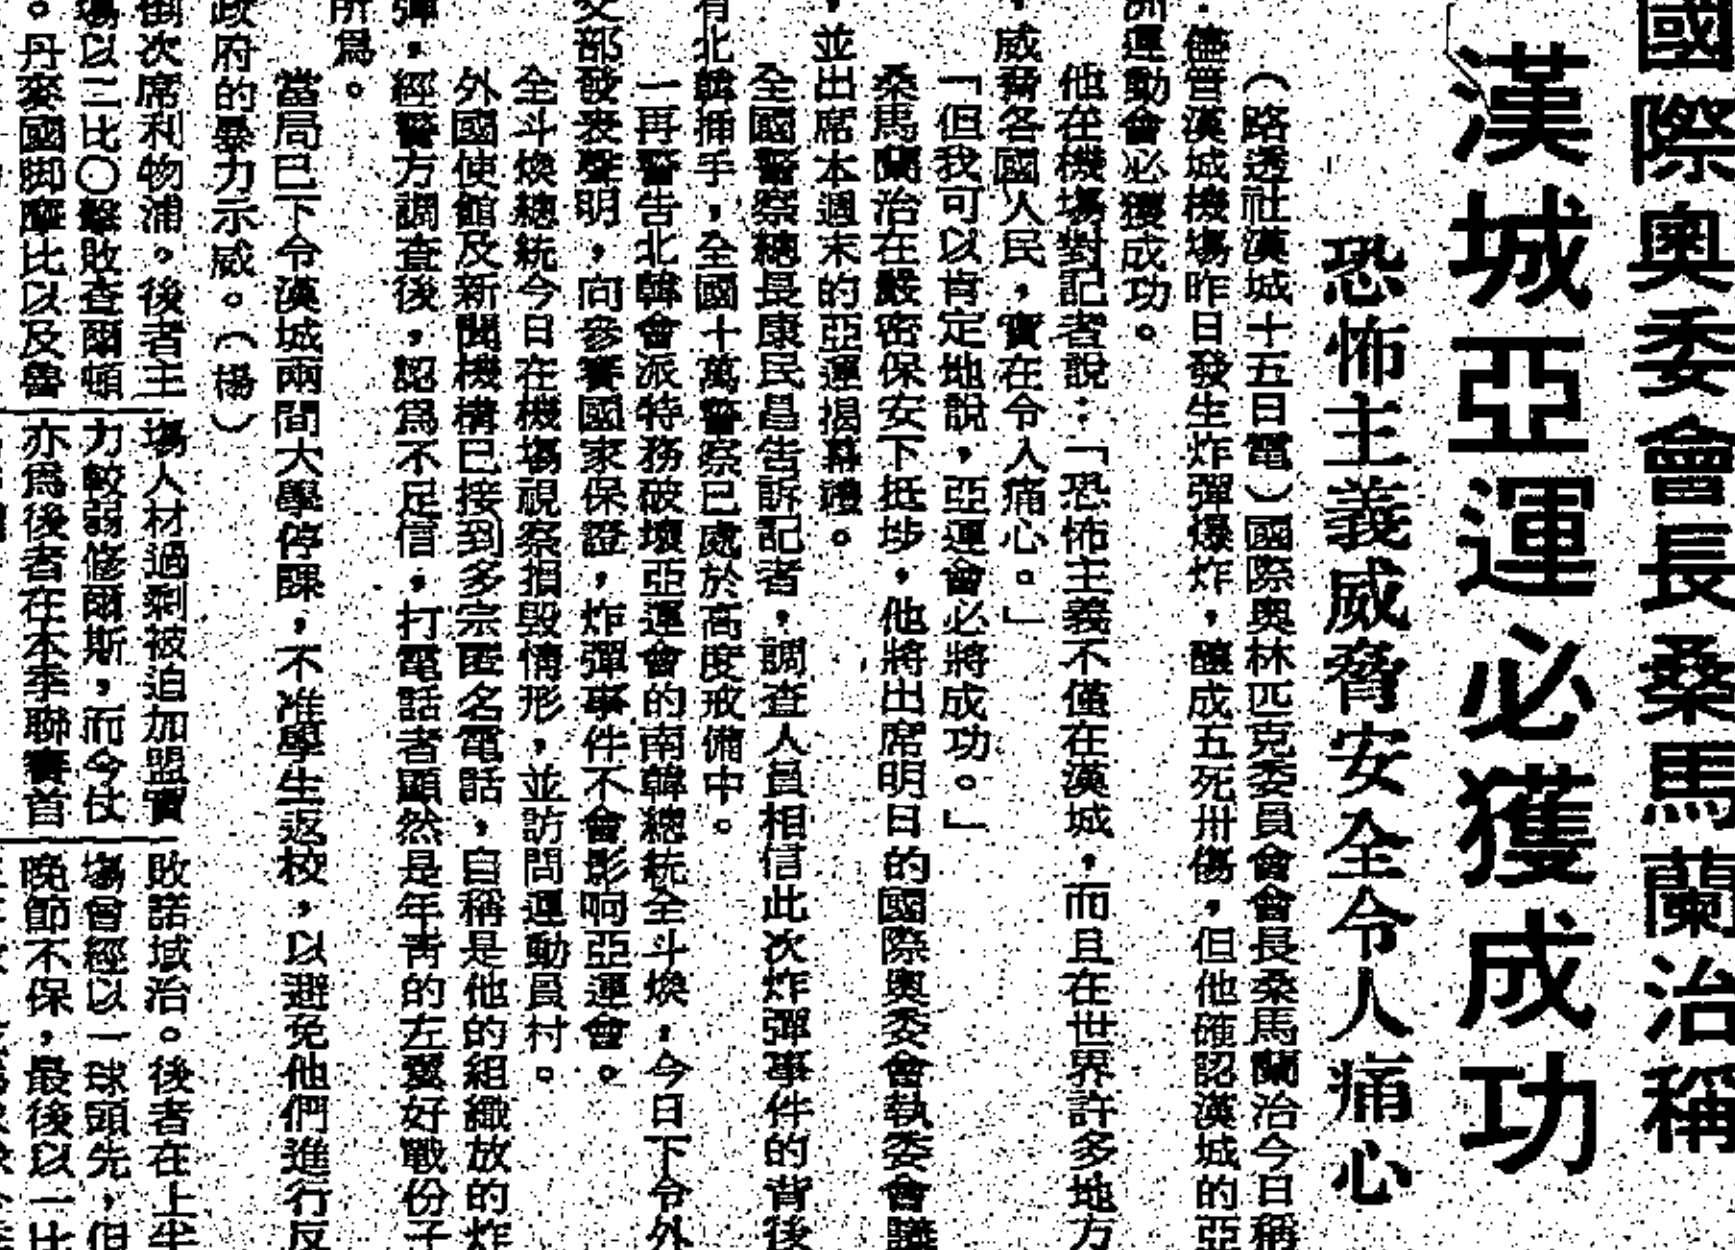 國際奧委會長桑馬蘭治稱
漢城亞運必獲成功
恐怖主義威脅安全令人痛心
（路透社漢城十五日電）國際奧林匹克委員會會長桑馬蘭治今日稱
，儘管漢城機場昨日發生炸彈爆炸，釀成五死卅傷，但他確認漢城的亞
洲運動會必獲成功。
他在機場對記者說：「恐怖主義不僅在漢城，而且在世界許多地方
，威脅各國人民，實在令人痛心。」
「但我可以肯定地說，亞運會必將成功。」
桑馬蘭治在嚴密保安下抵埗，他將出席明日的國際奧委會執委會議
，並出席本週末的亞運揭幕禮。
全國警察總長康民昌告訴記者，調查人員相信此次炸彈事件的背後
有北韓插手，全國十萬警察已處於高度戒備中。
一再警告北韓會派特務破壞亞運會的南韓總統全斗煥，今日下令外
交部發表聲明，向參賽國家保證，炸彈事件不會影响亞運會。
全斗煥總統今日在機場視察損毀情形，並訪問運動員村。
外國使館及新聞機構已接到多宗匿名電話，自稱是他的組織放的炸
彈，經警方調查後，認為不足信，打電話者顯然是年青的左翼好戰份子
所為。
當局已下令漢城兩間大學停課，不准學生返校，以避免他們進行反
政府的暴力示威。（楊）
倒次席利物浦。後者主
場以三比〇擊敗查爾頓
。丹麥國脚摩比以及魯
場人材過剩被迫加盟實
力較弱修爾斯，而今仗
亦為後者在本季聯賽首
敗諾域治。後者在上半
場曾經以一球頭先，但
晚節不保，最後以一比